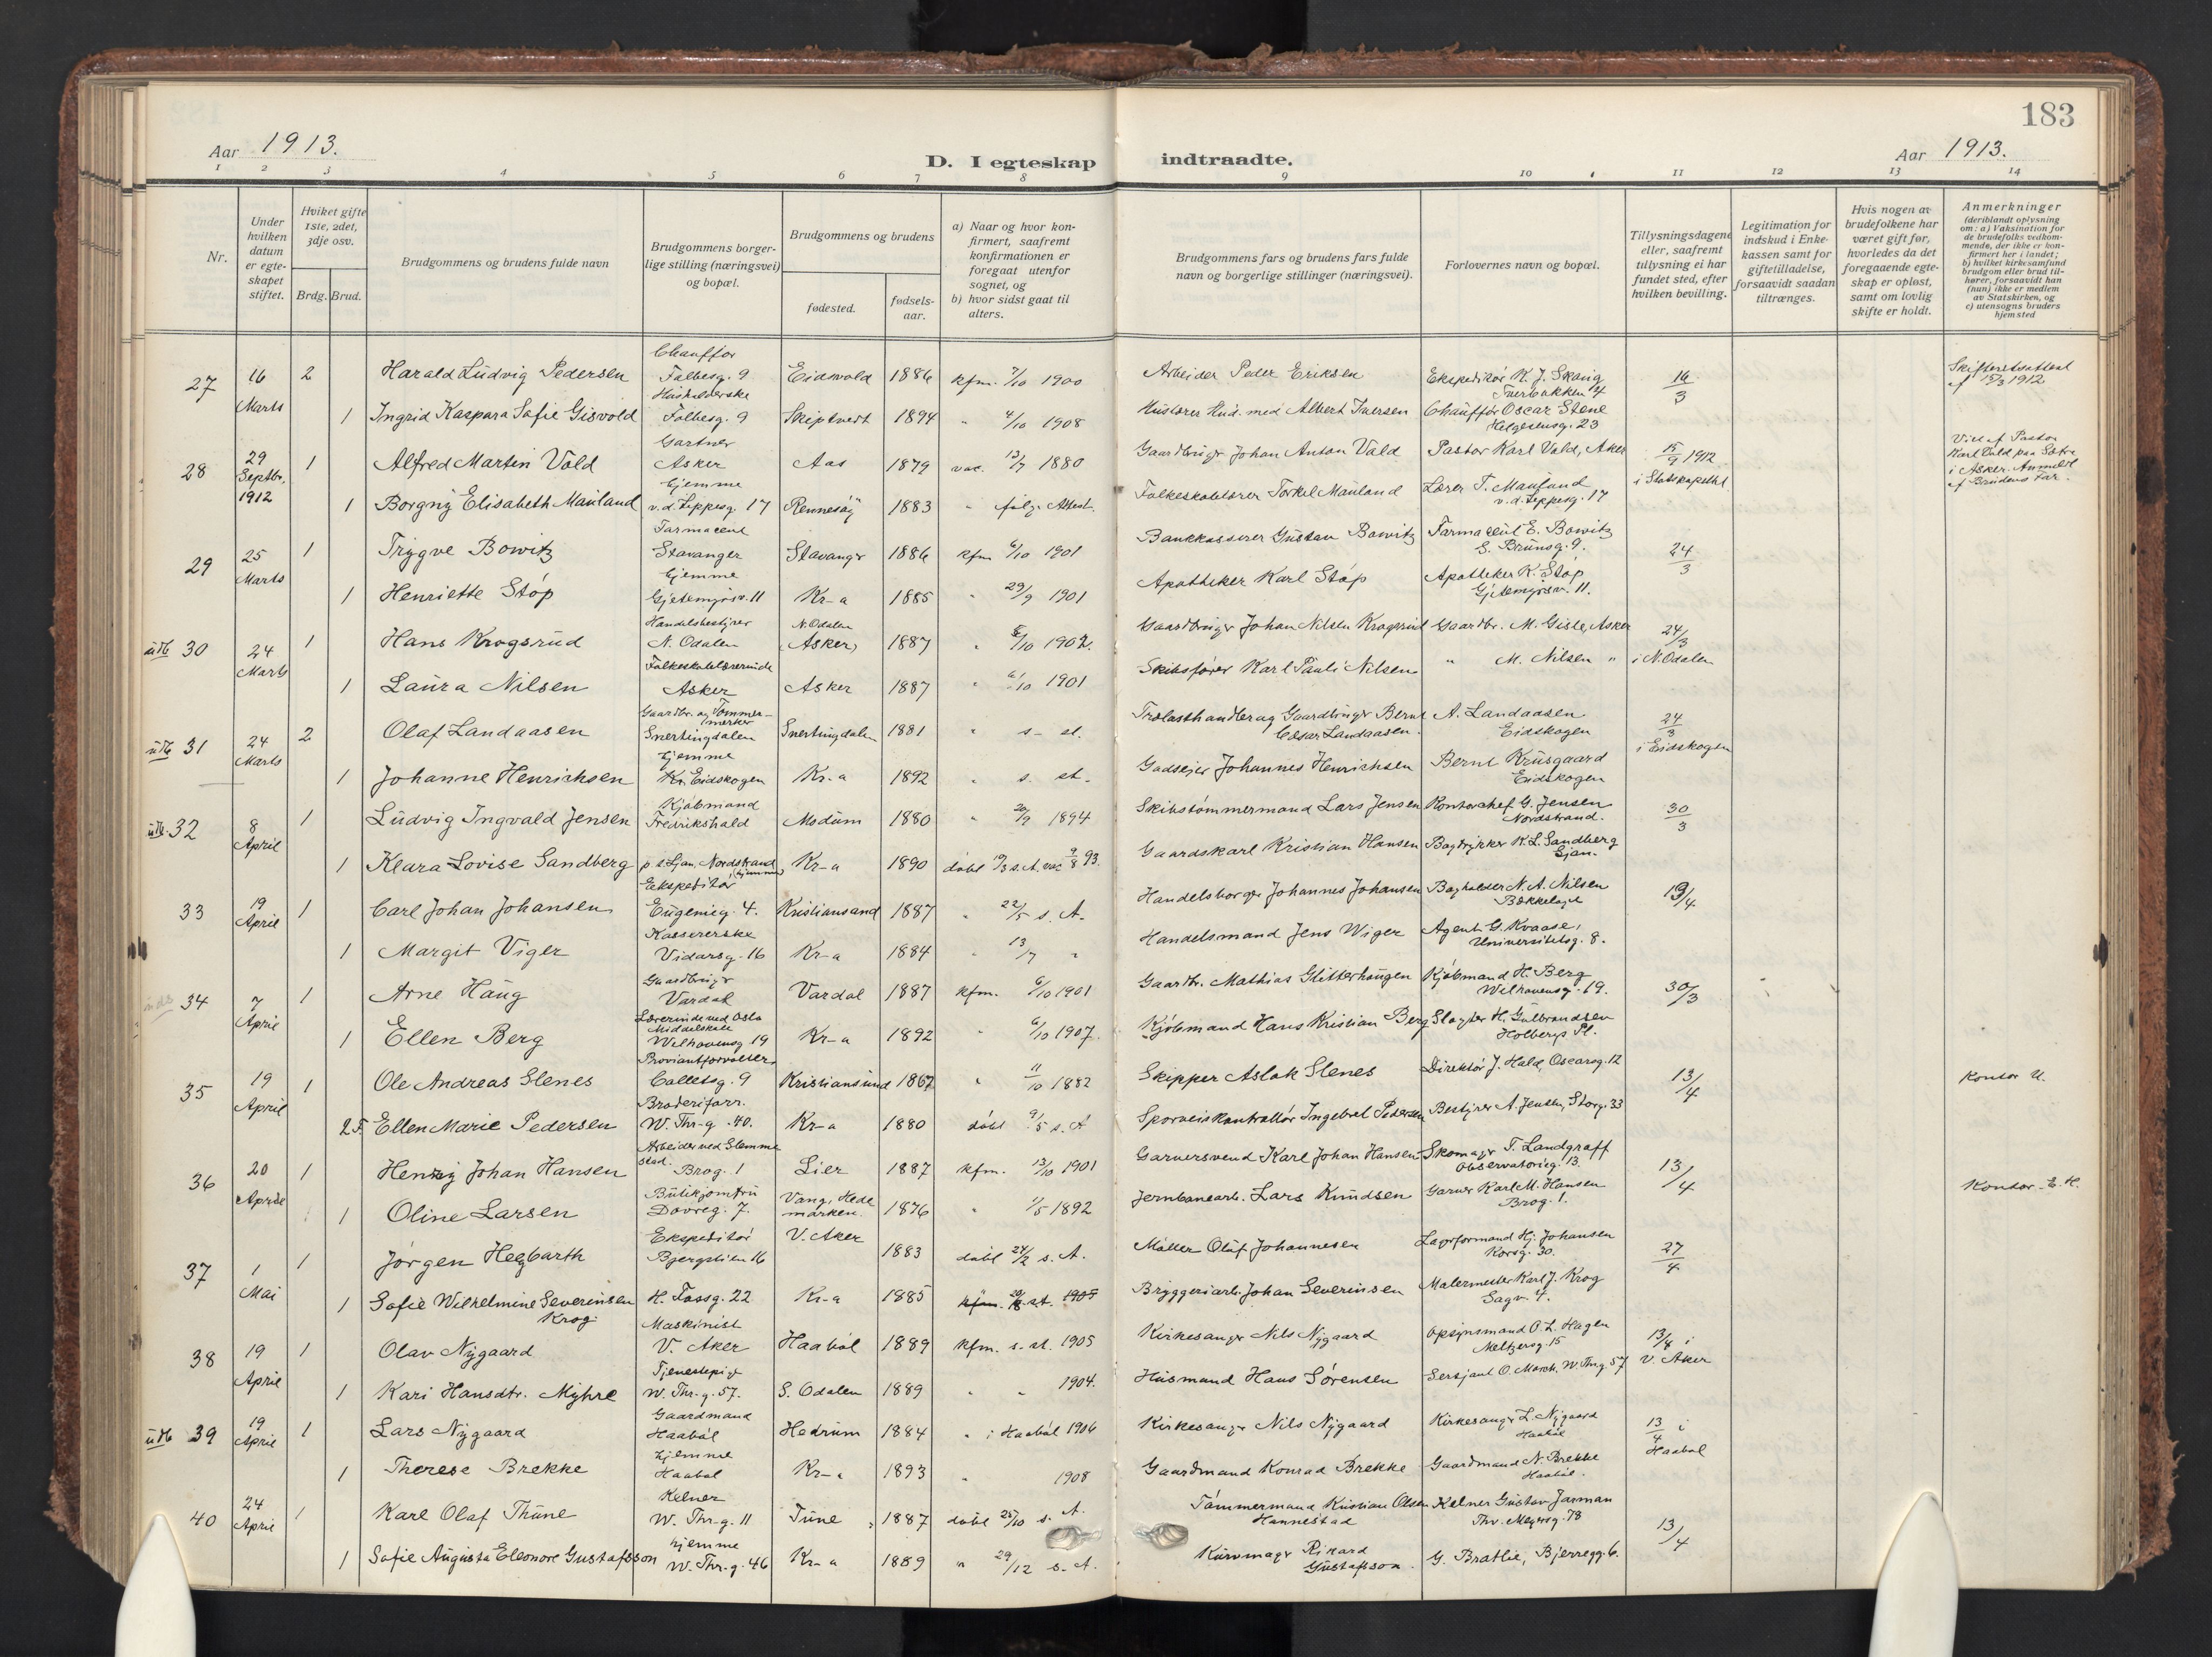 183
Aar 1913.
D. I egteskap indtraadte.
Aar 1913.
1 2 3 4 5 6 7 8 9 10 11 12 13 14
Nr.
Under hvilken datum er egteskapet stiftet.
Hviket gifte 1ste, 2det, 3dje osv.
Brdg. Brud.
Brudgommens og brudens fulde navn
Brudgommens borgerlige stilling (næringsvei) og bopæl.
Brudgommens og brudens
fødested.
fødselsaar.
a) Naar og hvor konfirmert, saafremt konfirmationen er foregaat utenfor sognet, og
b) hvor sidst gaat til alters.
Brudgommens fars og brudens fars fulde navn og borgerlige stillinger (næringsvei).
Forlovernes navn og bopæl.
Tillysningsdagene eller, saafremt tillysning ei har fundet sted, efter hvilken bevilling.
Legitimation for indskud i Enkekassen samt for giftetilladelse, forsaavidt saadan tiltrænges.
Hvis nogen av brudefolkene har været gift før, hvorledes da det foregaaende egteskap er opløst, samt om lovlig skifte er holdt.
Anmerkninger
(deriblandt oplysning om: a) Vaksination for de brudefolks vedkommende, der ikke er konfirmert her i landet; b) hvilket kirkesamfund brudgom eller brud tilhører, forsaavidt han (hun) ikke er medlem av Statskirken, og c) utensogns bruders hjemsted
27 16 Marts 2 Harald Ludvig Pedersen Chauffør Falbesg. 9 Eidsvold 1886 kfm. 7/10 1900 Arbeider Peder Eriksen Ekspeditør K. J. Skauig 16/3 Skifteretsattest af 15/3 1912
1 Ingrid Kaspara Sofie Gisvold Husholderske Falbesg. 9 Skiptvedt 1894 " 4/10 1908 Albert Iversen Chauffør Oscar Stene Helgesensg. 23
28 29 Septbr. 1912 1 Alfred Martin Vold Gartner Asker Aas 1879 vac. 13/7 1880 Gaardbruger Johan Anton Vald Pastor Karl Vald, Aker 15/9 1912 Viet af Pastor Karl Vald paa Sætre i Asker. Anmeldt af Brudens Far.
1 Borgny Elisabeth Mauland hjemme v. d. Lippesg. 17 Rennesøy 1883 " følge Attest. Folkeskolelærer Torkel Mauland Lærer T. Mauland v. d. Lippesg. 17
29 25 Marts 1 Trygve Bowitz Farmaceut Stavanger Stavanger 1886 kfm 6/10 1901 Bankkasserer Gustav Bowitz Farmaceut E. Bowitz E. Brunsg. 9. 24/3
1 Henriette Støp hjemme Gjetemyrsv. 11 Kr-a 1885 " 29/9 1901 Apotheker Karl Støp Apotheker K. Støp Gjetemyrsv. 11.
udb 30 24 Marts 1 Hans Krogsrud Handelsbestyrer N. Odalen N. Odalen (Asker) 1887 " 5/10 1902. Gaardbruger Johan Nilsen Krogsrud Gaardbr. M. Gisle, Asker 24/3 i N. Odalen
1 Laura Nilsen Folkeskolelærerinde Asker Asker 1887 " 6/10 1901 Skibsfører Karl Pauli Nilsen " M. Nilsen "
udb 31 24 Marts 2 Olaf Landaasen Gaardbr. og Tømmermerker Snertingdalen Snertingdalen 1881 " s. st. Trælasthandler og Gaardbruger Bernt Cesar Landaasen. A. Landaasen Eidskogen 24/3 i Eidskogen
1 Johanne Henrichsen hjemme Eidskogen Kr-a 1892 " s. st. Godseier Johannes Henrichsen Bernt Krusgaard Eidskogen
udb. 32 8 April 1 Ludvig Ingvald Jensen Kjøbmand Fredrikshald Modum 1880 " 1894 Skibstømmermand Lars Jensen Kontorchef G. Jensen Nordstrand. 30/3
1 Klara Lovise Sandberg p. t. Ljan, Nordstrand (hjemme) Kr-a 1890 døbt 19/3 s. A. vac 9/8 93. Gaardskarl Kristian Hansen Bogtrykker K. L. Sandberg Ljan.
33 19 April 1 Carl Johan Johansen Ekspeditør Eugenieg. 4. Kristiansand 1887 " 22/5 s. A. Handelsborger Johannes Johansen Bogholder N. A. Nilsen Bækkelaget 13/4
1 Margit Viger Kassererske Vidarsg. 16 Kr-a 1884 " 13/7 " Handelsmand Jens Wiger Agent G. Kvaase, Universitetsg. 8.
34 7 April 1 Arne Haug Gaardbruger Vardal Vardal 1887 kfm. 6/10 1901 Gaardbr. Mathias Glitterhaugen Kjøbmand H. Berg Welhavensg. 19. 30/3
1 Ellen Berg Lærerinde ved Oslo Middelskole Welhavensg 19 Kr-a 1892 " 6/10 1907. Kjøbmand Hans Kristian Berg Slagter H. Gulbrandsen Holbergs Pl.
35 19 April 1 Ole Andreas Slenes Proviantforvalter Colletsg. 9 Kristiansund 1867 " 11/10 1882 Skipper Aslak Slenes Direktør J. Hald, Oscarsg. 12 13/4 Kontor U.
2 F. Ellen Marie Pedersen Broderiforr. W. Thr-g. 40. Kr-a 1880 døbt 9/5 s. A Sporveiskontrollør Ingebret Pedersen Bestyrer A. Jensen, Storg. 33
36 20 April 1 Henry Johan Hansen Arbeider ved Slemmestad. Brog. 1 Lier 1887 kfm. 13/10 1901 Garversvend Karl Johan Hansen Skomager T. Landgraff Observatorieg. 13. 13/4 Kontor E. H.
1 Oline Larsen Butikjomfru Dovreg. 7. Vang, Hedemarken. 1876 " 1/5 1892 Jernbanearb. Lars Knudsen Garver Karl M. Hansen Brog. 1.
37 1 Mai 1 Jørgen Hegbarth Ekspeditør Bjergstien 16 V. Aker 1883 døbt 24/2 s. A. Møller Oluf Johannesen Lagerformand Hj. Johansen Korsg. 30. 27/4
1 Sofie Wilhelmine Severinsen Krog. H. Tossg. 22 Kr-a 1885 Bryggeriarb. Johan Severinsen Malermester Karl J. Krog Sagv. 4.
38 19 April 1 Olav Nygaard Maskinist V. Aker Haabøl 1889 kfm. s. st. 1905 Kirkesanger Nils Nygaard Opsynsmand O. L. Hagen Meltzersg. 15 13/4 i V. Aker
1 Kari Hansdtr. Myhre Tjenestepige W. Thr-g. 57. S. Odalen 1889 " " 1904. Husmand Hans Sørensen Sersjant O. Moseth. W. Thrg. 57
udb 39 19 April 1 Lars Nygaard Gaardmand Haabøl Hedrum 1884 " i Haabøl 1906 Kirkesanger Nils Nygaard Kirkesanger L. Nygaard Haabøl 13/4 i Haabøl
1 Therese Brekke hjemme Haabøl Kr-a 1893 " 1908 Gaardmand Konrad Brekke Gaardmand N. Brekke Haabøl.
40 24 April 1 Karl Olaf Thune Kelner W. Thr-g. 11 Tune 1887 døbt 25/10 s. A. Tømmermand Kristian Olsen Hannestad Kelner Gustav Jarman Thv. Meyersg. 78 13/4
1 Sofie Augusta Eleonore Gustafsson hjemme W. Thr-g. 46 Kr-a 1889 " 29/12 s. A. Kurvmager Rikard Gustafsson. G. Bratlie, Bjerregg. 6.